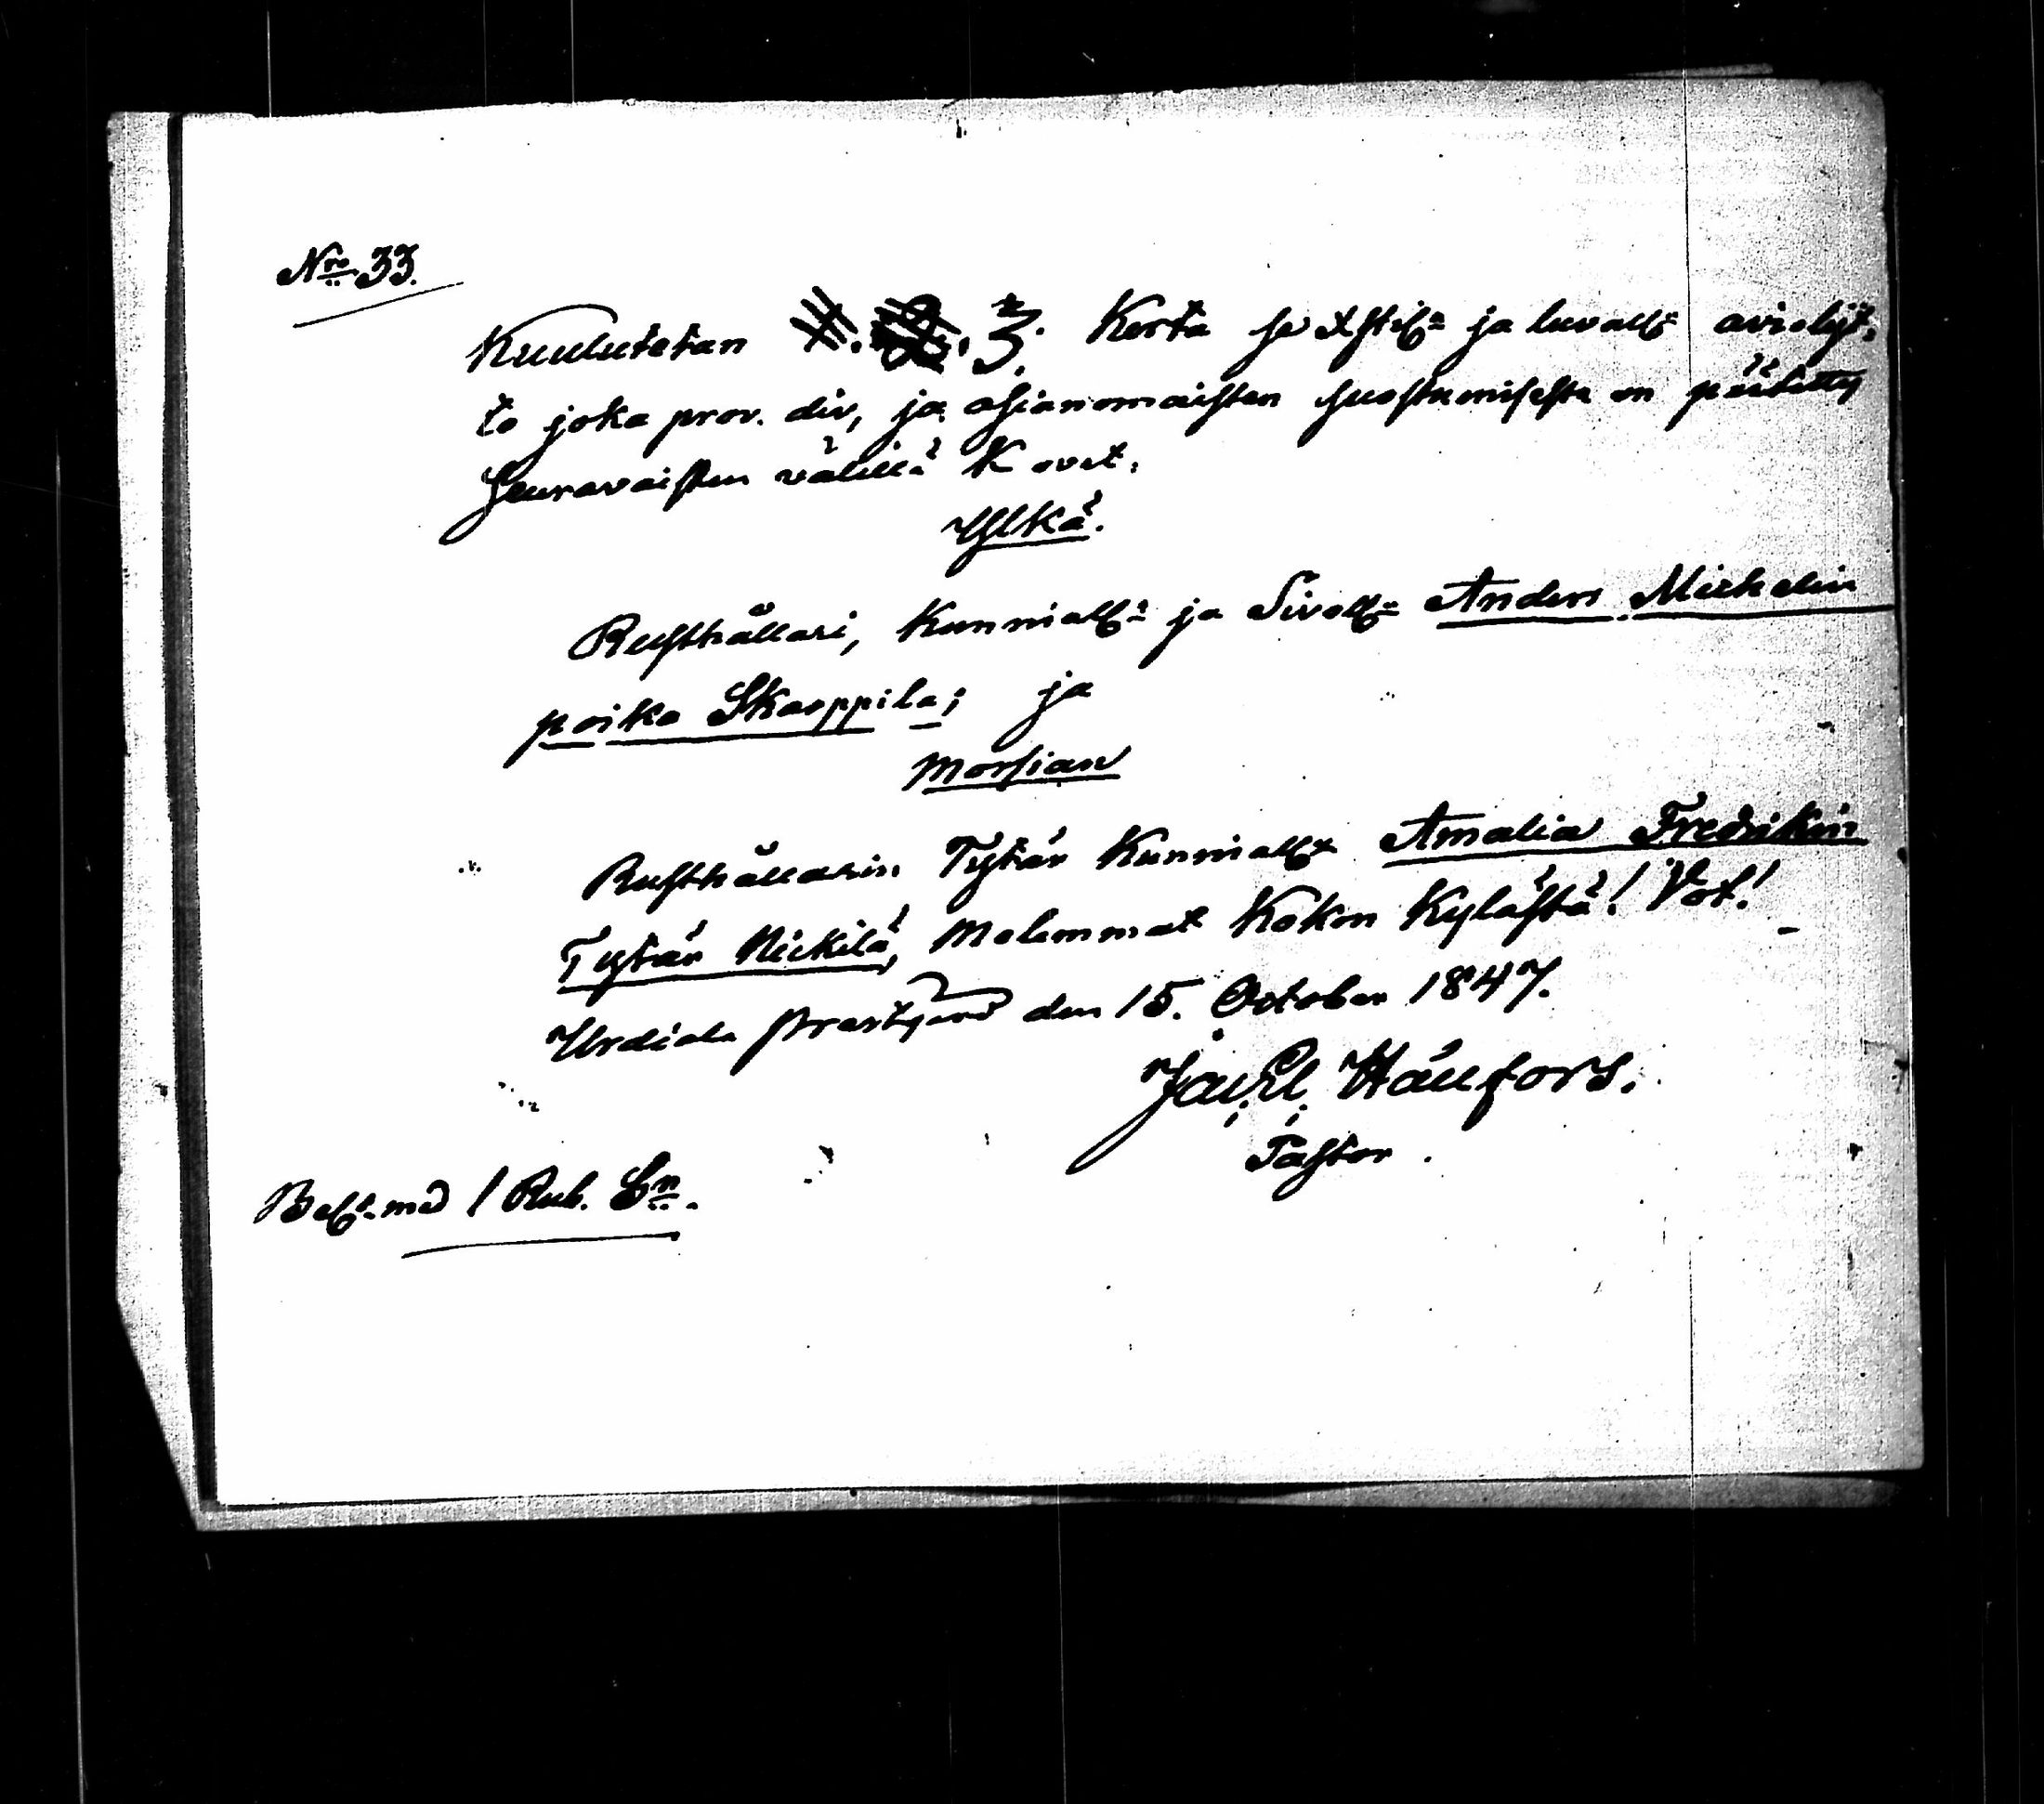 Nro 33.
Kuulutetan 1. 2. 3. Kerta se Xstill:n ja luvall:n avioliit:
to joka prov. div, ja asianomaisten suostumisesta on päätetty
seuravaisten välillä K ovet:
Ylkä.
Rusthållari, Kunniall:n ja Siviall:n Anders Michelin
poika Skarppila; ja
Morsian
Rusthållarin Tytär Kunniall:n Amalia Fredrikin
Tytär Nickilä, Molemmat Kokon Kylästä! Vot!
Urdiala prestgård den 15. October 1847.
Hällfors.
Pastor.
Bet:t med 1 Rub. Sr.